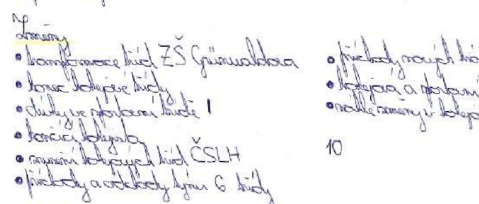 Změny
• transformace tříd ZŠ Grünwaldova
• konec hokejové třídy
• dívky ve sportovní třídě 1
• končící hokejista
• zrušení hokejových tříd ČSLH
• příchody a odchody týmu 6 třídy
• příchody nových
• hokejová a sportovní
• náhlé změny v
10